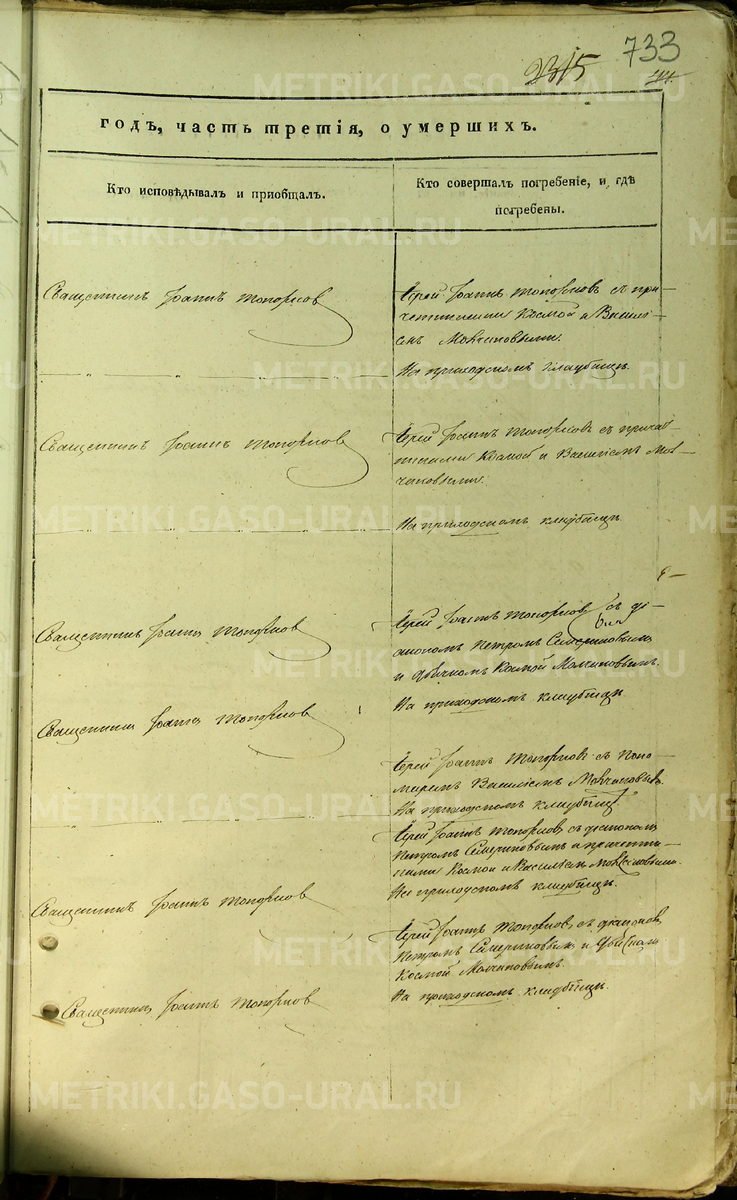 2315
733
годъ, часть третія, о умершихъ.
Кто исповѣдывалъ и приобщалъ.
Кто совершалъ погребеніе, и, гдѣ
погребены.
Священникъ Іоаннъ Топорковъ
Іерей Іоаннъ Топорковъ съ при-
четниками Космой и Васи-
емъ Молчановыми.
На приходскомъ кладбищѣ.
Священникъ Іоаннъ Топорковъ
Іерей Іоаннъ Топорковъ съ причет-
никами Космой и Василіемъ Мол-
чановыми.
На приходскомъ кладбищѣ.
Священникъ Іоаннъ Топорковъ
Іерей Іоаннъ Топорковъ съ ді-
акономъ Петромъ
и дьячкомъ Космой Молчановымъ.
На приходскомъ кладбищѣ.
Священникъ Іоаннъ Топорковъ
Іерей Іоаннъ Топорковъ съ поно-
маремъ Василіемъ Молчановымъ.
На приходскомъ кладбищѣ.
Іерей Іоаннъ Топорковъ, съ діакономъ
Петромъ и причетни-
ками Космой и Василіемъ Молчановыми.
На приходскомъ кладбищѣ.
Священникъ Іоаннъ Топорковъ
Іерей Іоаннъ Топорковъ, съ діакономъ
Петромъ и дьячкомъ
Космой Молчановымъ.
На приходскомъ кладбищѣ.
Священникъ Іоаннъ Топорковъ
METRIKI.GASO-URAL.RU